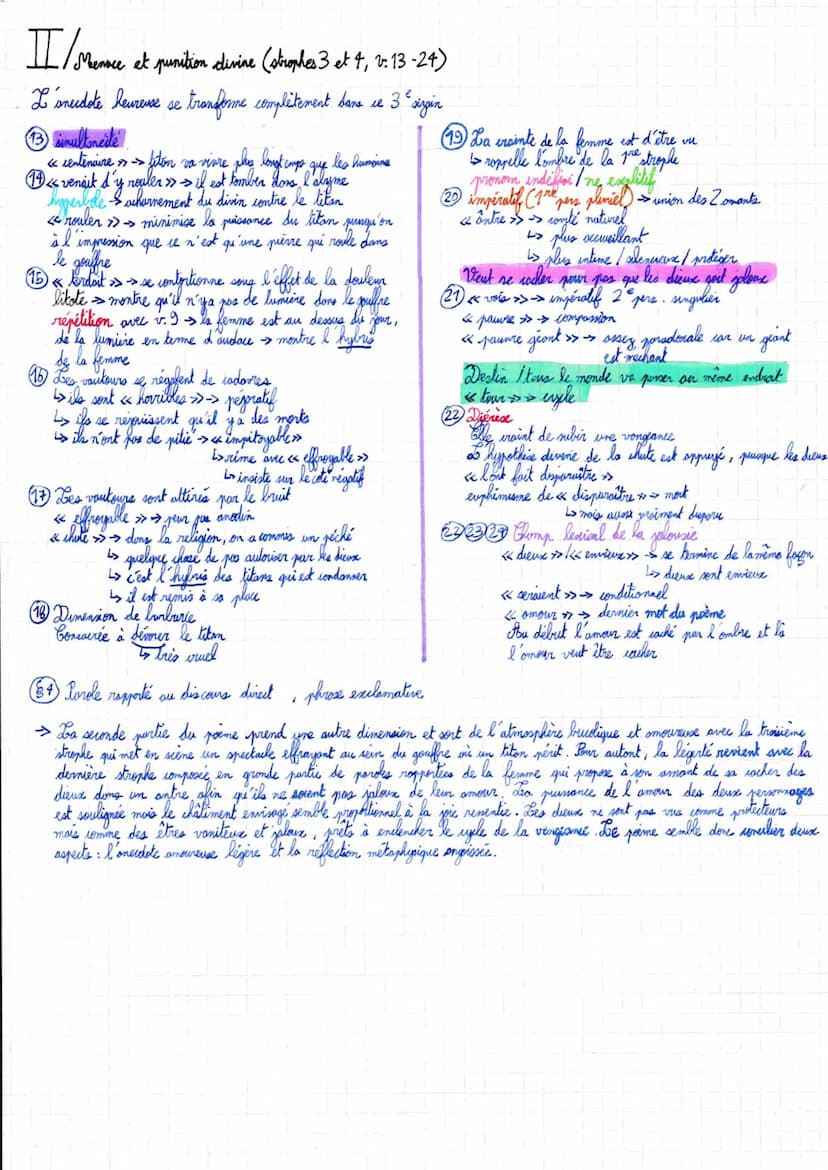 II/ Menace et punition divine (strophes 3 et 4, v. 13-24)
L'anecdote heureuse se transforme complètement dans ce 3e sizain
13 simultanéité
« centenaire » → titan va vivre plus longtemps que les humains
14 « venait d'y rouler » → il est tomber dans l'abyme
hyperbole → acharnement du divin contre le titan
« rouler » → minimise la puissance du titan puisqu'on
à l'impression que ce n'est qu'une pierre qui roule dans
le gouffre
15 « tordait » → se contortionne sous l'effet de la douleur
litote → montre qu'il n'ya pas de lumière dans le gouffre
répétition avec v. 9 → la femme est au dessus du jour,
de la lumière en terme d'audace → montre l'hybris
de la femme
16 Les vautours se régalent de cadavres
↳ ils sont « horribles » → pejoratif
↳ ils se réjouissent qu'il ya des morts
↳ ils n'ont pas de pitié → « impitoyable »
↳ rime avec « effroyable »
↳ insiste sur le coté négatif
17 Les vautours sont attirés par le bruit
« effroyable » → peur pas anodin
« chute » → dans la religion, on a commis un péché
↳ quelque chose de pas autoriser par les dieux
↳ c'est l'hybris des titans qui est condamner
↳ il est remis à sa place
18 Dimension de barbarie
Consacrée à dévorer le titan
↳ très cruel
19 La crainte de la femme est d'être vu
↳ rappelle l'ombre de la 1re strophe
pronom indéfini / ne explitif
20 impératif (1re pers pluriel) → union des 2 amants
« antre » → cavité naturel
↳ plus accueillant
↳ plus intime / silencieux / protéger
Veut se cacher pour pas que les dieux soit jaloux
21 « vois » → impératif 2e pers. singulier
« pauvre » → compassion
« pauvre géant » → assez paradoxale car un géant
est méchant
Destin / tous le monde va passer au même endroit
« tour » → cycle
22 Diérèse
Elle craint de subir une vengeance
L'hypothèse divine de la chute est appuyé, puisque les dieux
« l'ont fait disparaître »
euphémisme de « disparaître » → mort
↳ mais aussi vraiment disparu
22 23 24 Champ lexical de la jalousie
« dieux » / « envieux » → se termine de la même façon
↳ dieux sont envieux
« seraient » → conditionnel
« amour » → dernier mot du poème
Au début l'amour est caché par l'ombre et là
l'amour veut être cacher
§4 Parole rapporté au discours direct , phrase exclamative
→ La seconde partie du poème prend une autre dimension et sort de l'atmosphère bucolique et amoureuse avec la troisième
strophe qui met en scène un spectacle effrayant au sein du gouffre où un titan périt. Pour autant, la légerté revient avec la
dernière strophe composée en grande partie de paroles rapportées de la femme qui propose à son amant de sa cacher des
dieux dans un antre afin qu'ils ne soient pas jaloux de leur amour. La puissance de l'amour des deux personnages
est soulignée mais le châtiment envisagé semble proportionnel à la joie ressentie. Les dieux ne sont pas vus comme protecteurs
mais comme des êtres vaniteux et jaloux, prêts à enclencher le cycle de la vengeance. Le poème semble donc concilier deux
aspects : l'anecdote amoureuse légère et la réflection métaphysique angoissée.